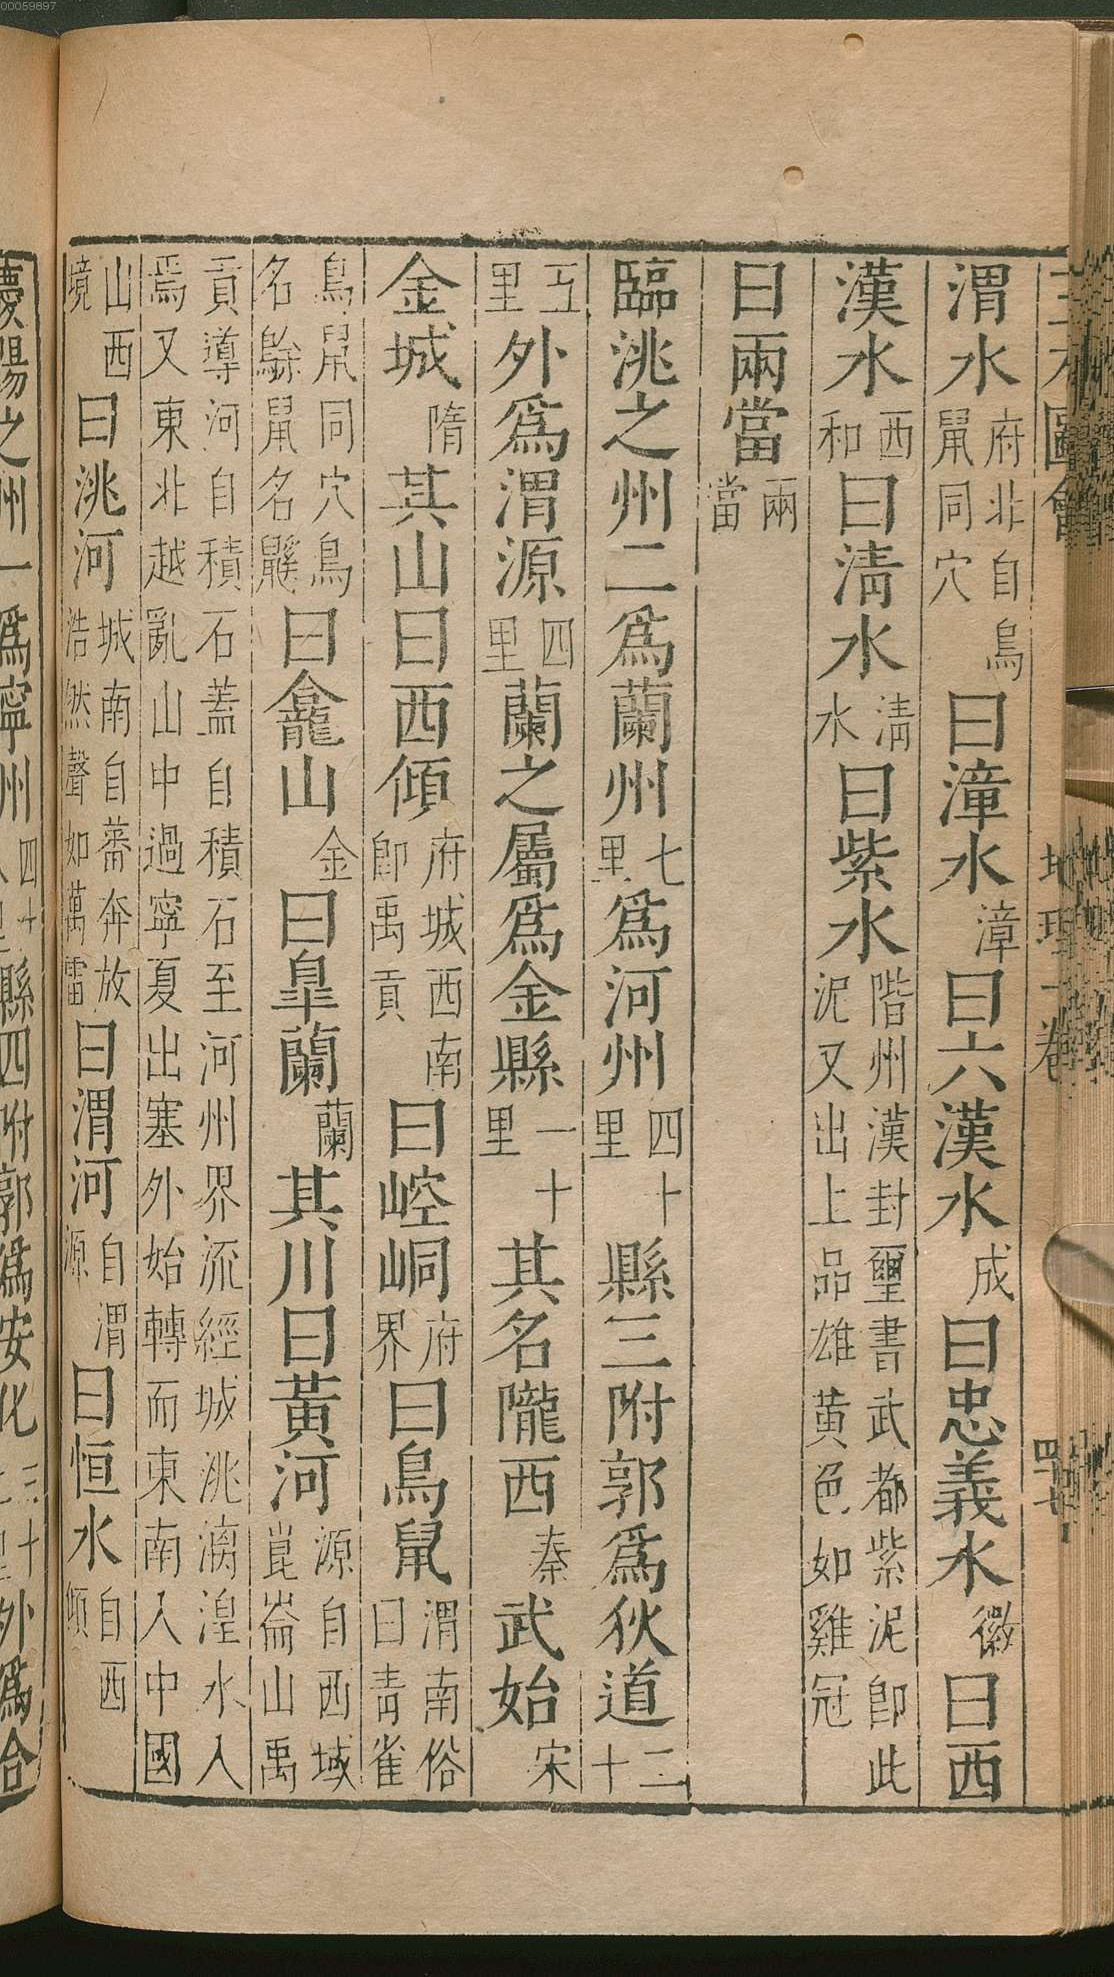 00059897
三才圖會 地理一卷 四十七
渭水府北自鳥鼠同穴曰漳水漳曰六漢水成曰忠義水徽曰西
漢水西和曰清水清水曰紫水階州漢封璽書武都紫泥即此泥又出上品雄黃色如雞冠
曰兩當兩當
臨洮之州二爲蘭州七里爲河州四十里縣三附郭爲狄道二十
五里外爲渭源四里蘭之屬爲金縣一十里其名隴西秦武始宋
金城隋其山曰西傾府城西南即禹貢曰崆峒府界曰鳥鼠渭南俗曰青雀
鳥鼠同穴鳥名鵌鼠名鼵曰龕山金曰皐蘭蘭其川曰黃河源自西域崑崙山禹
貢導河自積石蓋自積石至河州界流經城洮漓湟水入
焉又東北越亂山中過寧夏出塞外始轉而東南入中國
山西境曰洮河城南自蕃奔放浩然聲如萬雷曰渭河自渭源曰恒水自西傾
慶陽之州一爲寧州縣四附郭爲安化外爲合